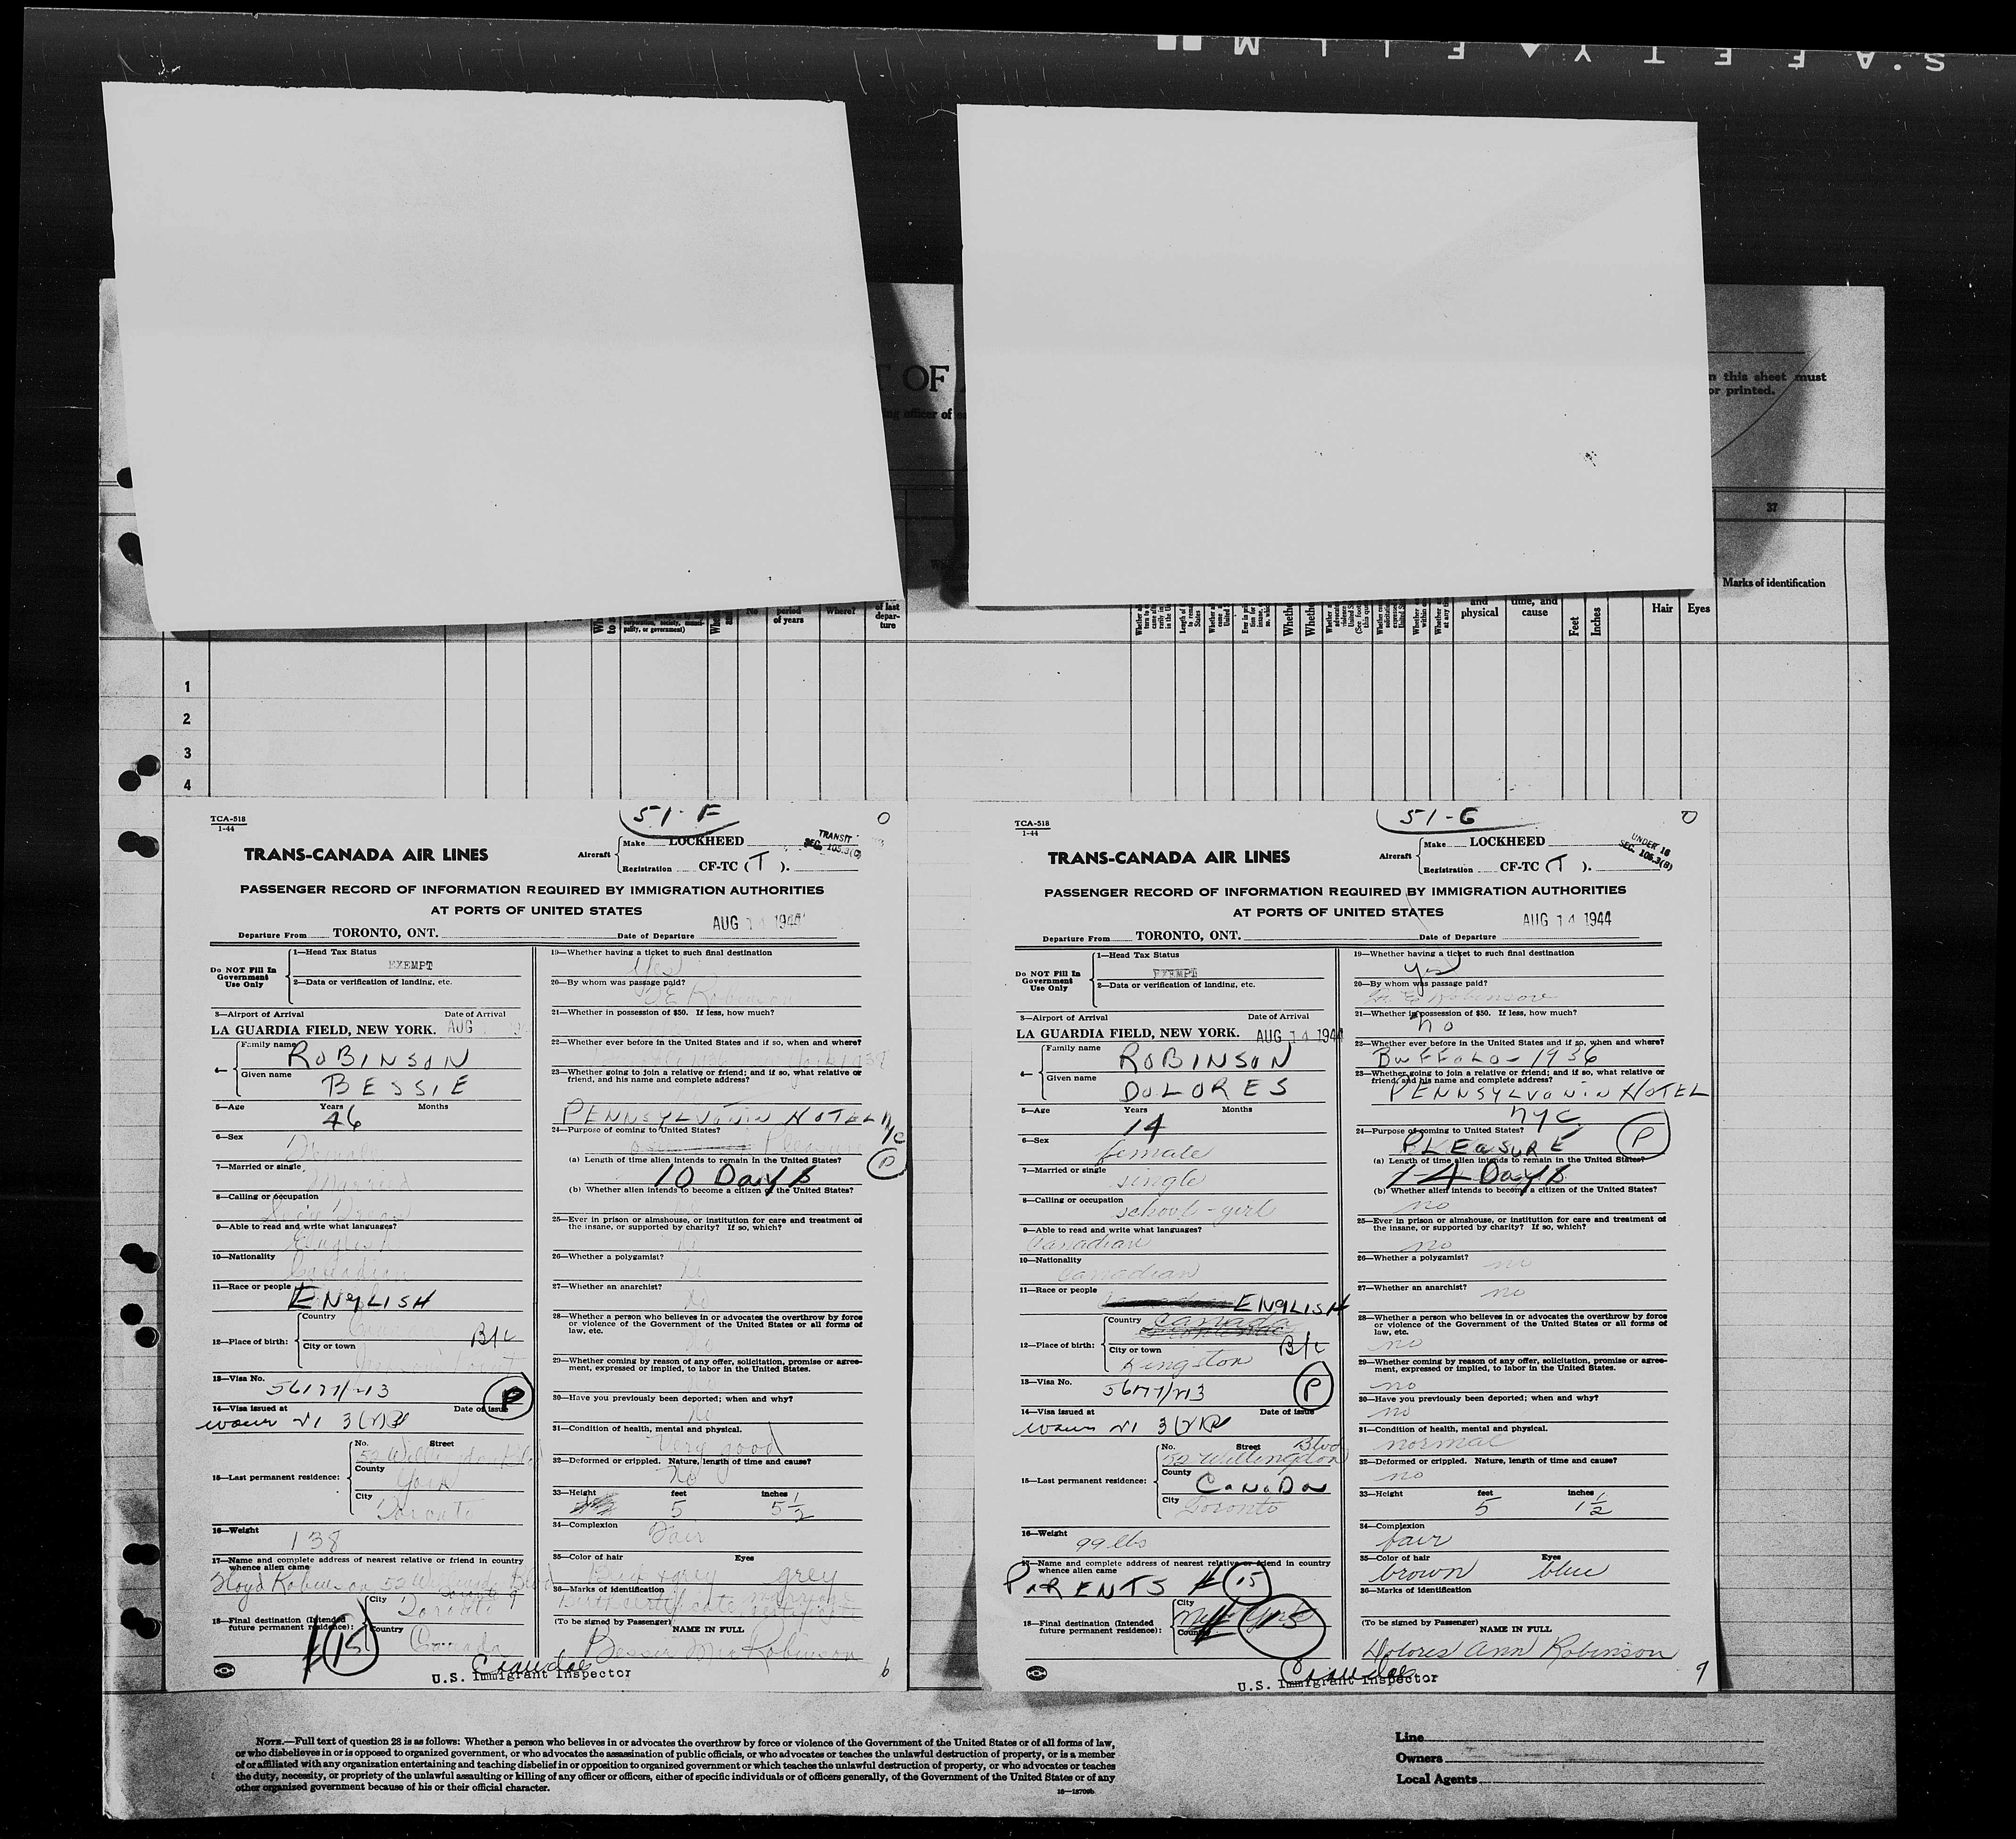 S.AFETY▲FILM
T OF
n this sheet must
or printed.
ing officer of
37
Marks of identification
No
period
of years
Where?
of last
depar-
ture
and
physical
time, and
cause
Feet
Inches
Hair
Eyes
1
2
3
4
51-F
TCA-518
1-44
TRANS-CANADA AIR LINES
Aircraft
Make LOCKHEED
Registration CF-TC (T).
TRANSIT
SEC. 105.3(C)
PASSENGER RECORD OF INFORMATION REQUIRED BY IMMIGRATION AUTHORITIES
AT PORTS OF UNITED STATES
AUG 14 1944
Departure From TORONTO, ONT. Date of Departure
Do NOT Fill In
Government
Use Only
1—Head Tax Status
EXEMPT
2—Data or verification of landing, etc.
3—Airport of Arrival Date of Arrival
LA GUARDIA FIELD, NEW YORK. AUG
4—
Family name
ROBINSON
Given name
BESSIE
5—Age Years Months
46
6—Sex
Female
7—Married or single
Married
8—Calling or occupation
9—Able to read and write what languages?
English
10—Nationality
Canadian
11—Race or people
ENGLISH
12—Place of birth:
Country
B/C
City or town
13—Visa No.
P
14—Visa issued at Date of issue
15—Last permanent residence:
No. Street
52 Willingdon Blvd
County
York
City
Toronto
16—Weight
138
17—Name and complete address of nearest relative or friend in country
whence alien came
Floyd Robinson, 52 Willingdon Blvd
18—Final destination (Intended
future permanent residence):
City
Toronto
Country
Canada
15
19—Whether having a ticket to such final destination
Yes
20—By whom was passage paid?
Robinson
21—Whether in possession of $50. If less, how much?
22—Whether ever before in the United States and if so, when and where?
23—Whether going to join a relative or friend; and if so, what relative or
friend, and his name and complete address?
PENNSYLVANIA HOTEL NYC
24—Purpose of coming to United States?
Pleasure
P
(a) Length of time alien intends to remain in the United States?
10 Days
(b) Whether alien intends to become a citizen of the United States?
25—Ever in prison or almshouse, or institution for care and treatment of
the insane, or supported by charity? If so, which?
26—Whether a polygamist?
No
27—Whether an anarchist?
No
28—Whether a person who believes in or advocates the overthrow by force
or violence of the Government of the United States or all forms of
law, etc.
No
29—Whether coming by reason of any offer, solicitation, promise or agree-
ment, expressed or implied, to labor in the United States.
30—Have you previously been deported; when and why?
No
31—Condition of health, mental and physical.
Very good
32—Deformed or crippled. Nature, length of time and cause?
No
33—Height feet inches
5 5½
34—Complexion
Fair
35—Color of hair Eyes
grey
36—Marks of identification
Birth certificate
(To be signed by Passenger)
NAME IN FULL
Bessie Mae Robinson
Crandal
U.S. Immigrant Inspector
6
51-G
TCA-518
1-44
TRANS-CANADA AIR LINES
Aircraft
Make LOCKHEED
Registration CF-TC (T).
UNDER 16
SEC. 105.3(8)
PASSENGER RECORD OF INFORMATION REQUIRED BY IMMIGRATION AUTHORITIES
AT PORTS OF UNITED STATES
AUG 14 1944
Departure From TORONTO, ONT. Date of Departure
Do NOT Fill In
Government
Use Only
1—Head Tax Status
EXEMPT
2—Data or verification of landing, etc.
3—Airport of Arrival Date of Arrival
LA GUARDIA FIELD, NEW YORK. AUG 14 1944
4—
Family name
ROBINSON
Given name
DOLORES
5—Age Years Months
14
6—Sex
female
7—Married or single
single
8—Calling or occupation
school-girl
9—Able to read and write what languages?
Canadian
10—Nationality
Canadian
11—Race or people
ENGLISH
12—Place of birth:
Country
Canada
B/C
City or town
Kingston
13—Visa No.
P
14—Visa issued at Date of issue
15—Last permanent residence:
No. Street Blvd
52 Willingdon
County
CANADA
City
Toronto
16—Weight
99 lbs
17—Name and complete address of nearest relative or friend in country
whence alien came
PARENTS 15
18—Final destination (Intended
future permanent residence):
City
New York
Country
15
19—Whether having a ticket to such final destination
yes
20—By whom was passage paid?
Robinson
21—Whether in possession of $50. If less, how much?
no
22—Whether ever before in the United States and if so, when and where?
BUFFALO - 1936
23—Whether going to join a relative or friend; and if so, what relative or
friend, and his name and complete address?
PENNSYLVANIA HOTEL
NYC
24—Purpose of coming to United States?
PLEASURE
P
(a) Length of time alien intends to remain in the United States?
14 Days
(b) Whether alien intends to become a citizen of the United States?
no
25—Ever in prison or almshouse, or institution for care and treatment of
the insane, or supported by charity? If so, which?
no
26—Whether a polygamist?
no
27—Whether an anarchist?
no
28—Whether a person who believes in or advocates the overthrow by force
or violence of the Government of the United States or all forms of
law, etc.
no
29—Whether coming by reason of any offer, solicitation, promise or agree-
ment, expressed or implied, to labor in the United States.
no
30—Have you previously been deported; when and why?
no
31—Condition of health, mental and physical.
normal
32—Deformed or crippled. Nature, length of time and cause?
no
33—Height feet inches
5 1½
34—Complexion
fair
35—Color of hair Eyes
brown blue
36—Marks of identification
(To be signed by Passenger)
NAME IN FULL
Dolores Ann Robinson
Crandal
U.S. Immigrant Inspector
9
NOTE.—Full text of question 28 is as follows: Whether a person who believes in or advocates the overthrow by force or violence of the Government of the United States or of all forms of law,
or who disbelieves in or is opposed to organized government, or who advocates the assassination of public officials, or who advocates or teaches the unlawful destruction of property, or is a member
of or affiliated with any organization entertaining and teaching disbelief in or opposition to organized government or which teaches the unlawful destruction of property, or who advocates or teaches
the duty, necessity, or propriety of the unlawful assaulting or killing of any officer or officers, either of specific individuals or of officers generally, of the Government of the United States or of any
other organized government because of his or their official character.
Line
Owners
Local Agents